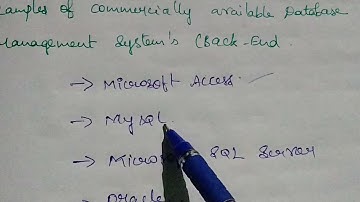 amples of commercially available Database
Management System's (Back-End.
→ Microsoft Access.
→ MySQL
→ Micros SQL Server
→ Oracle